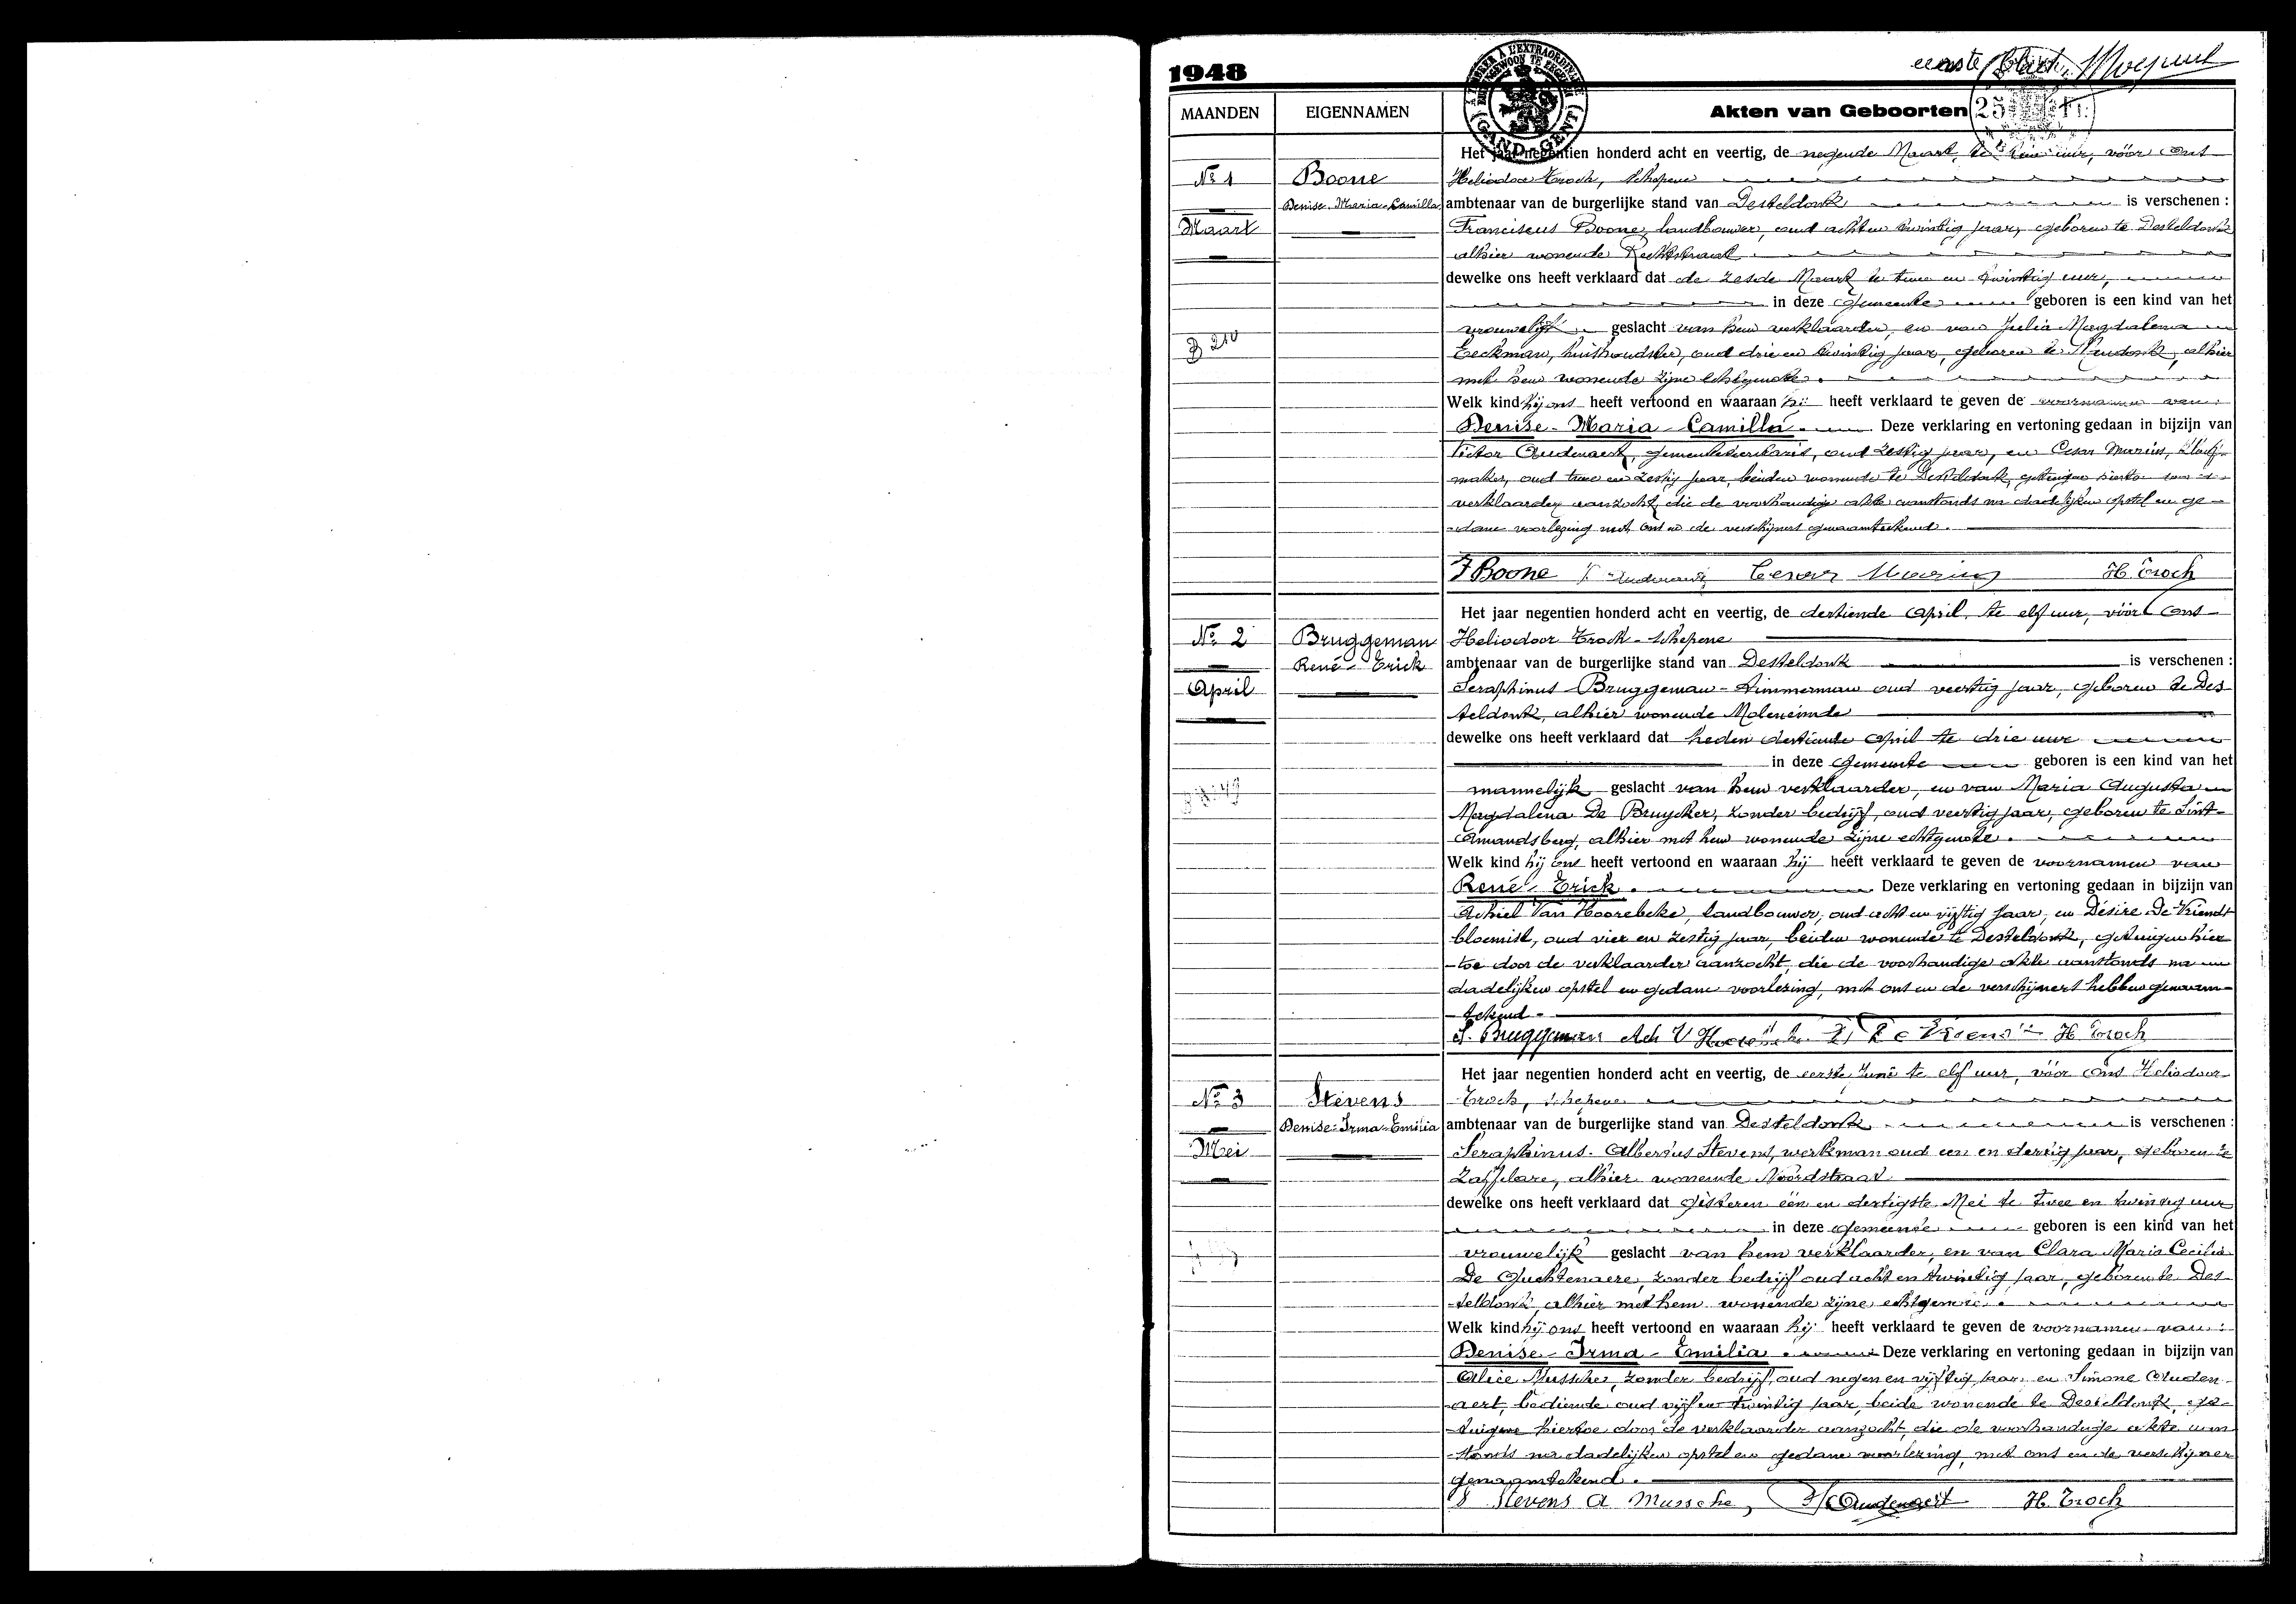 1948
eerste blad
À TIMBRER À L'EXTRAORDINAIRE
(GAND-GENT)
25
MAANDEN EIGENNAMEN Akten van Geboorten
Het jaar negentien honderd acht en veertig, de negende Maart, te uur, vóór ons
Nr 1 Boone Heliodoor Troch, schepene
Denise-Maria-Camilla ambtenaar van de burgerlijke stand van Desteldonk is verschenen :
Maart Franciscus Boone, landbouwer, oud acht en twintig jaar, geboren te Desteldonk
alhier wonende Rechtstraat
dewelke ons heeft verklaard dat de zesde Maart te twee en twintig uur,
in deze gemeente geboren is een kind van het
vrouwelijk geslacht van hem verklaarder, en van Julia Magdalena
Eeckman, huishoudster, oud drie en twintig jaar, geboren te Mendonk, alhier
met hem wonende zijne echtgenote.
Welk kind hij ons heeft vertoond en waaraan hij heeft verklaard te geven de voornamen van :
Denise-Maria-Camilla. Deze verklaring en vertoning gedaan in bijzijn van
Victor Oudenaert, gemeentesecretaris, oud zestig jaar, en Cesar Murins,
maker, oud twee en zestig jaar, beiden wonende te Desteldonk, getuigen hiertoe door de
verklaarder aanzocht, die de voorhandige akte aanstonds na dadelijken opstel en ge-
-dane voorlezing met ons en de verschijners genaamtekend.
F Boone Cesar H. Troch
Het jaar negentien honderd acht en veertig, de dertiende April te elf uur, vóór ons
Nr 2 Bruggeman Heliodoor Troch-schepene
René-Erick ambtenaar van de burgerlijke stand van Desteldonk is verschenen :
April Seraphinus Bruggeman-timmerman oud veertig jaar, geboren te Des-
teldonk, alhier wonende Moleneinde
dewelke ons heeft verklaard dat heden dertiende April te drie uur
in deze gemeente geboren is een kind van het
mannelijk geslacht van hem verklaarder, en van Maria Augusta
Magdalena De Bruycker, zonder bedrijf, oud veertig jaar, geboren te Sint-
Amandsberg, alhier met hem wonende zijne echtgenote.
Welk kind hij ons heeft vertoond en waaraan hij heeft verklaard te geven de voornamen van
René-Erick. Deze verklaring en vertoning gedaan in bijzijn van
Achiel Van Hoorebeke, landbouwer, oud acht en vijftig jaar, en Désiré De Vriendt
bloemist, oud vier en zestig jaar, beiden wonende te Desteldonk, getuigen hier
-toe door de verklaarder aanzocht, die de voorhandige akte aanstonds na
dadelijken opstel en gedane voorlezing, met ons en de verschijners hebben genaam-
-tekend-
S. Bruggeman Ach V H. Troch
Het jaar negentien honderd acht en veertig, de eerste Juni te elf uur, vóór ons Heliodoor
Nr 3 Stevens Troch, schepene
Denise-Irma-Emilia ambtenaar van de burgerlijke stand van Desteldonk is verschenen :
Mei Seraphinus-Albertus Stevens, werkman oud een en dertig jaar, geboren te
Zaffelare, alhier wonende Noordstraat
dewelke ons heeft verklaard dat gisteren één en dertigste Mei te twee en twintig uur
in deze gemeente geboren is een kind van het
vrouwelijk geslacht van hem verklaarder, en van Clara Maria Cecilia
De Guchtenaere, zonder bedrijf oud acht en twintig jaar, geboren te Des-
-teldonk alhier met hem wonende zijne echtgenote.
Welk kind hij ons heeft vertoond en waaraan hij heeft verklaard te geven de voornamen van :
Denise-Irma-Emilia. Deze verklaring en vertoning gedaan in bijzijn van
Alice Mussche, zonder bedrijf, oud negen en vijftig jaar, en Simone Ouden-
aert, bediende oud vijf en twintig jaar, beide wonende te Desteldonk, ge-
-tuigen hiertoe door de verklaarder aanzocht, die de voorhandige akte aan
-stonds na dadelijken opstel en gedane voorlezing, met ons en de verschijner
genaamtekend.
S Stevens A Mussche, S Oudenaert H. Troch